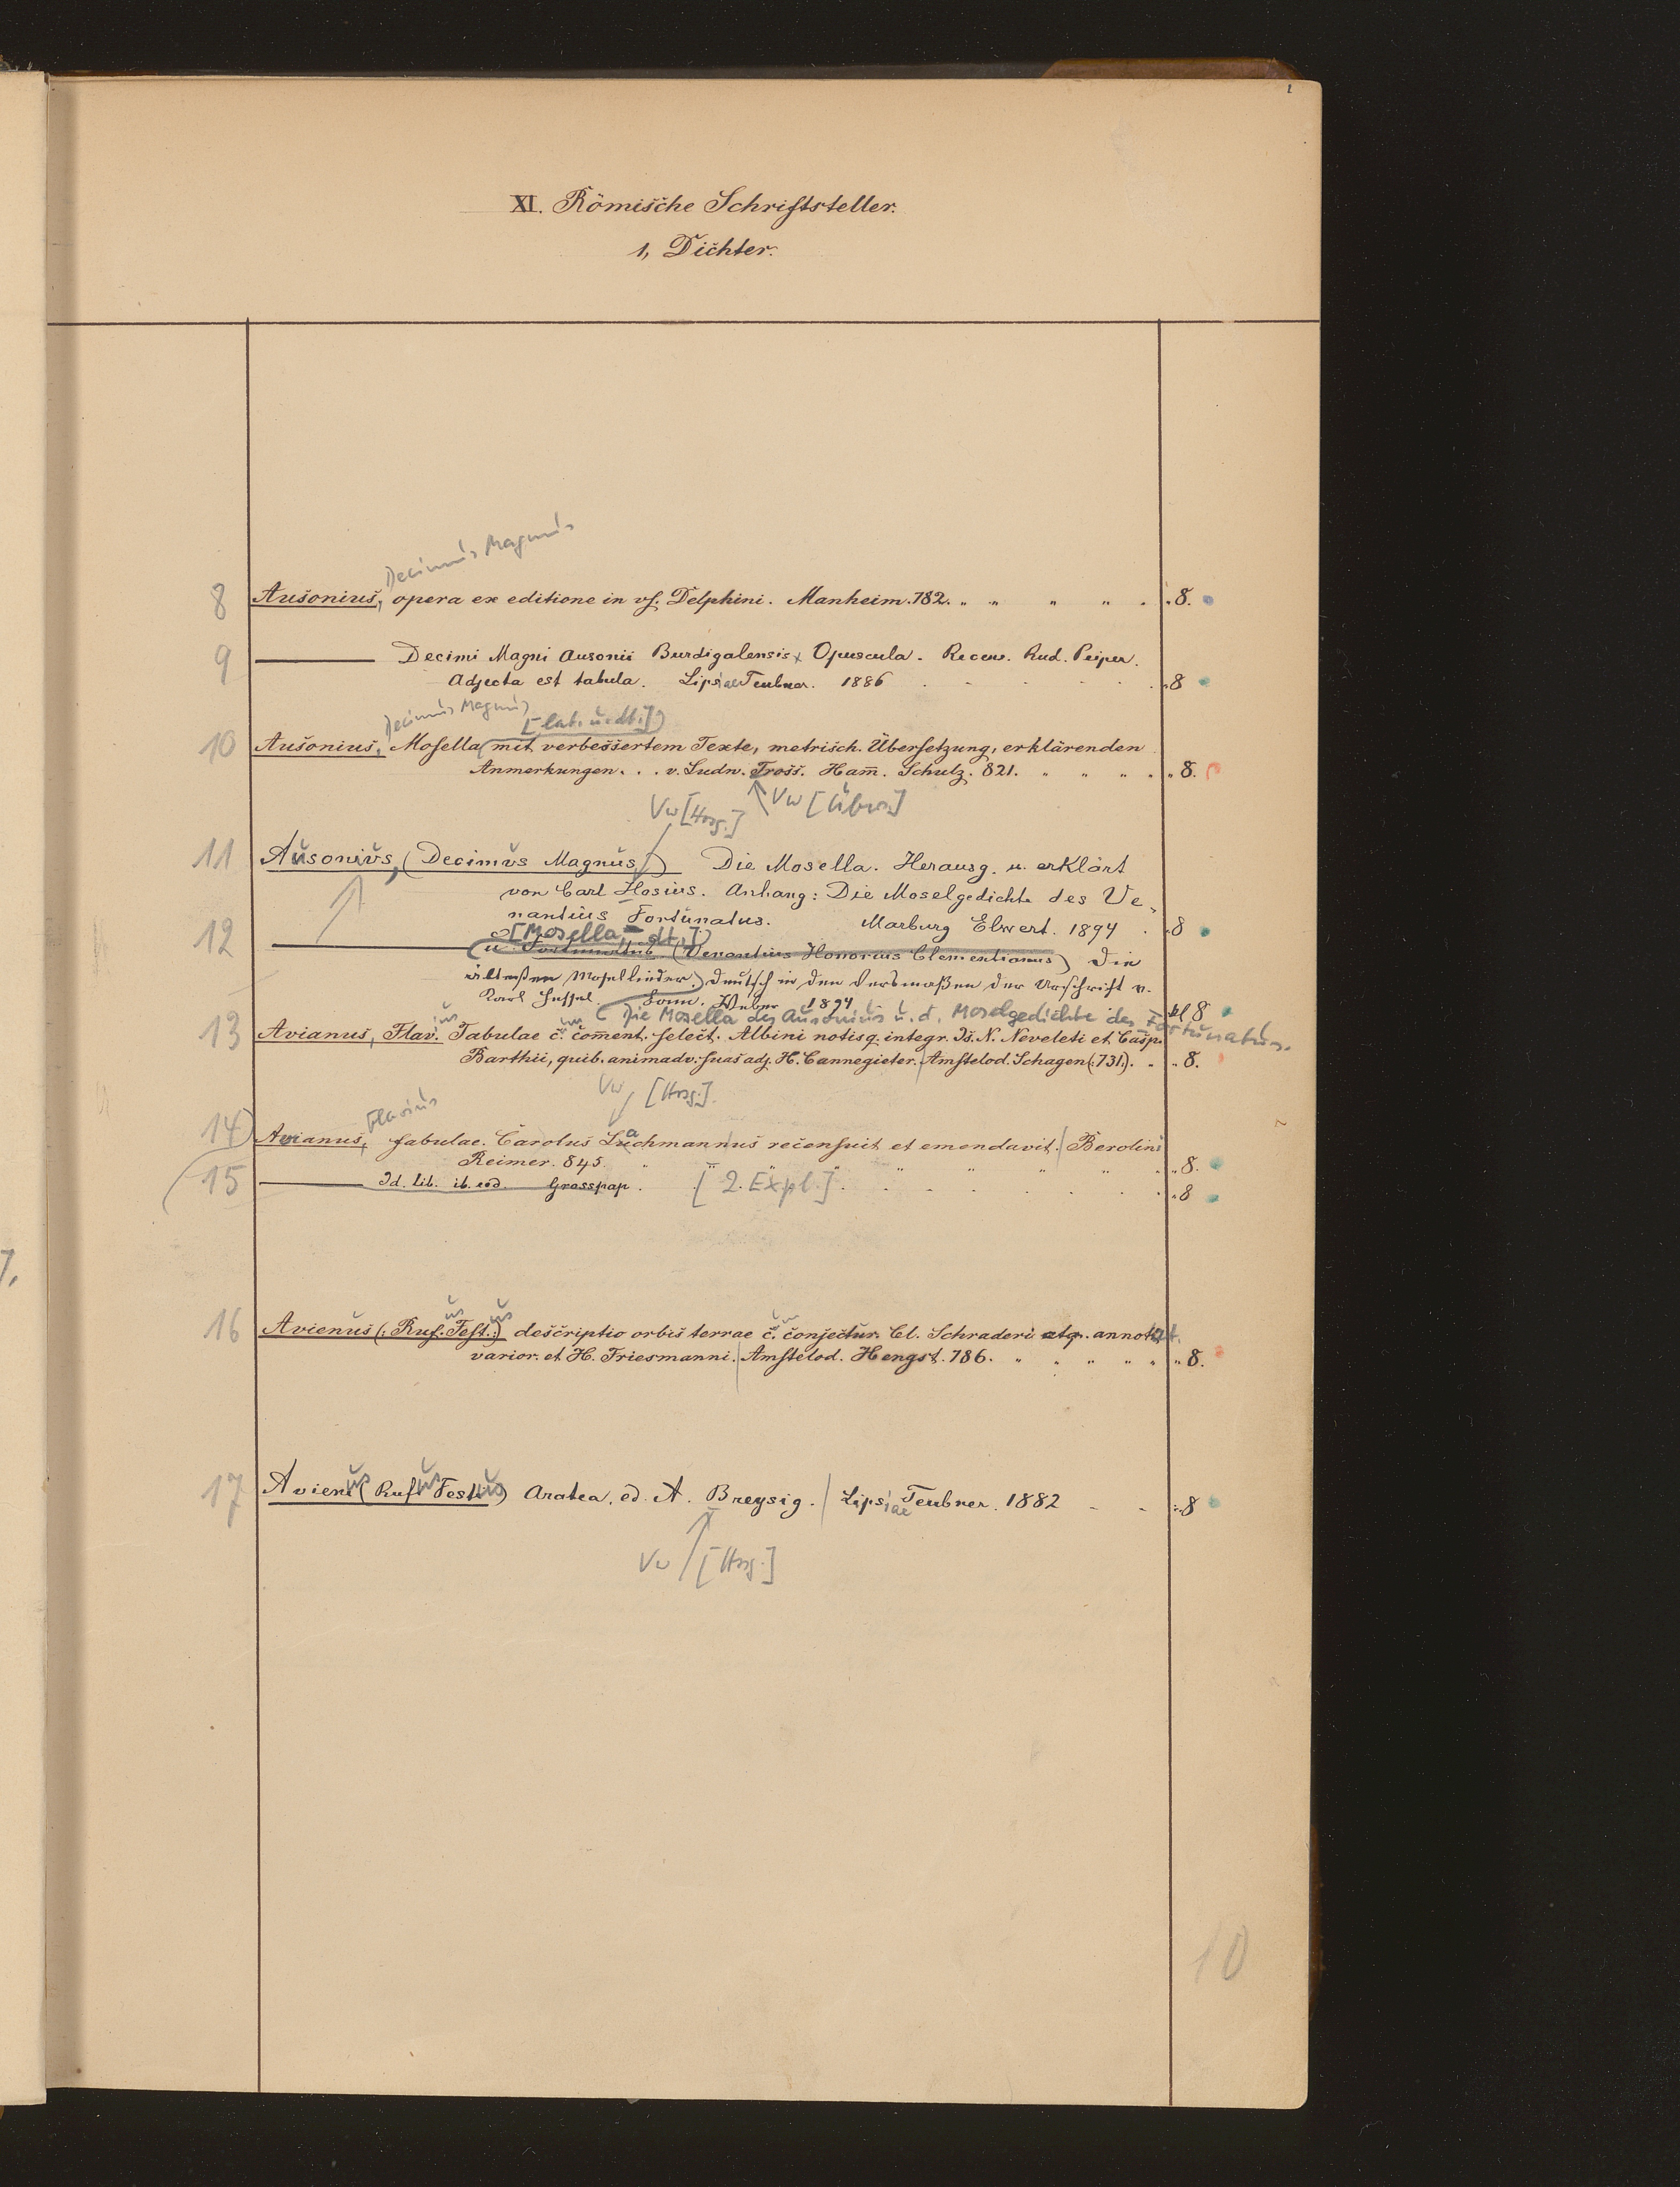 XI. Römische Schriftsteller.
1, Dichter.
Decimus Magnus
8 Ausonius, opera ex editione in us. Delphini. Manheim. 782. 8.
9 Decimi Magni Ausonii Burdigalensis Opuscula. Recens. Rud. Peiper.
Adjecta est tabula. Lipsiae Teubner. 1886 8
Decimus Magnus [lat. u. dt.]
10 Ausonius, Mosella (mit verbessertem Texte, metrisch. Übersetzung, erklärenden
Anmerkungen. . . v. Ludw. Tross. Ham̄. Schulz. 821. 8.
Vw [Hrsg.] Vw [Übers.]
11 Ausonius, (Decimus Magnus) Die Mosella. Herausg. u. erklärt
von Carl Hosius. Anhang: Die Moselgedichte des Ve-
nantius Fortunatus. Marburg Elwert. 1894 8
[Mosella, dt.]
12 (u. Fortunatus (Venantius Honorius Clementianus) Die
ältesten Mosellieder.) Deutsch in den Versmaßen der Urschrift v.
Karl Hessel. Bonn. Weber 1894 kl 8
(Die Mosella des Ausonius u. d. Moselgedichte des Fortunatus.
13 Avianus, Flavius Fabulae c. com̄ent. select. Albini notisq. integr. Is. N. Neveleti et Casp.
Barthii, quib. animadv. suas adj. H. Cannegieter. Amstelod. Schagen (731). 8.
Vw [Hrsg.]
Flavius
14 Avianus, fabulae. Carolus Lachmannus recensuit et emendavit. Berolini
Reimer. 845. 8.
15 Id. lib. ib. eod. Grosspap. [2. Expl.] 8
16 Avienus (Rufus Festus) descriptio orbis terrae c. conjectur. Cl. Schraderi atq. annotat.
varior. et H. Friesmanni. Amstelod. Hengst. 786. 8.
17 Avienus (Rufus Festus) Aratea. ed. A. Breysig. Lipsiae Teubner. 1882 8
Vw [Hrsg.]
10